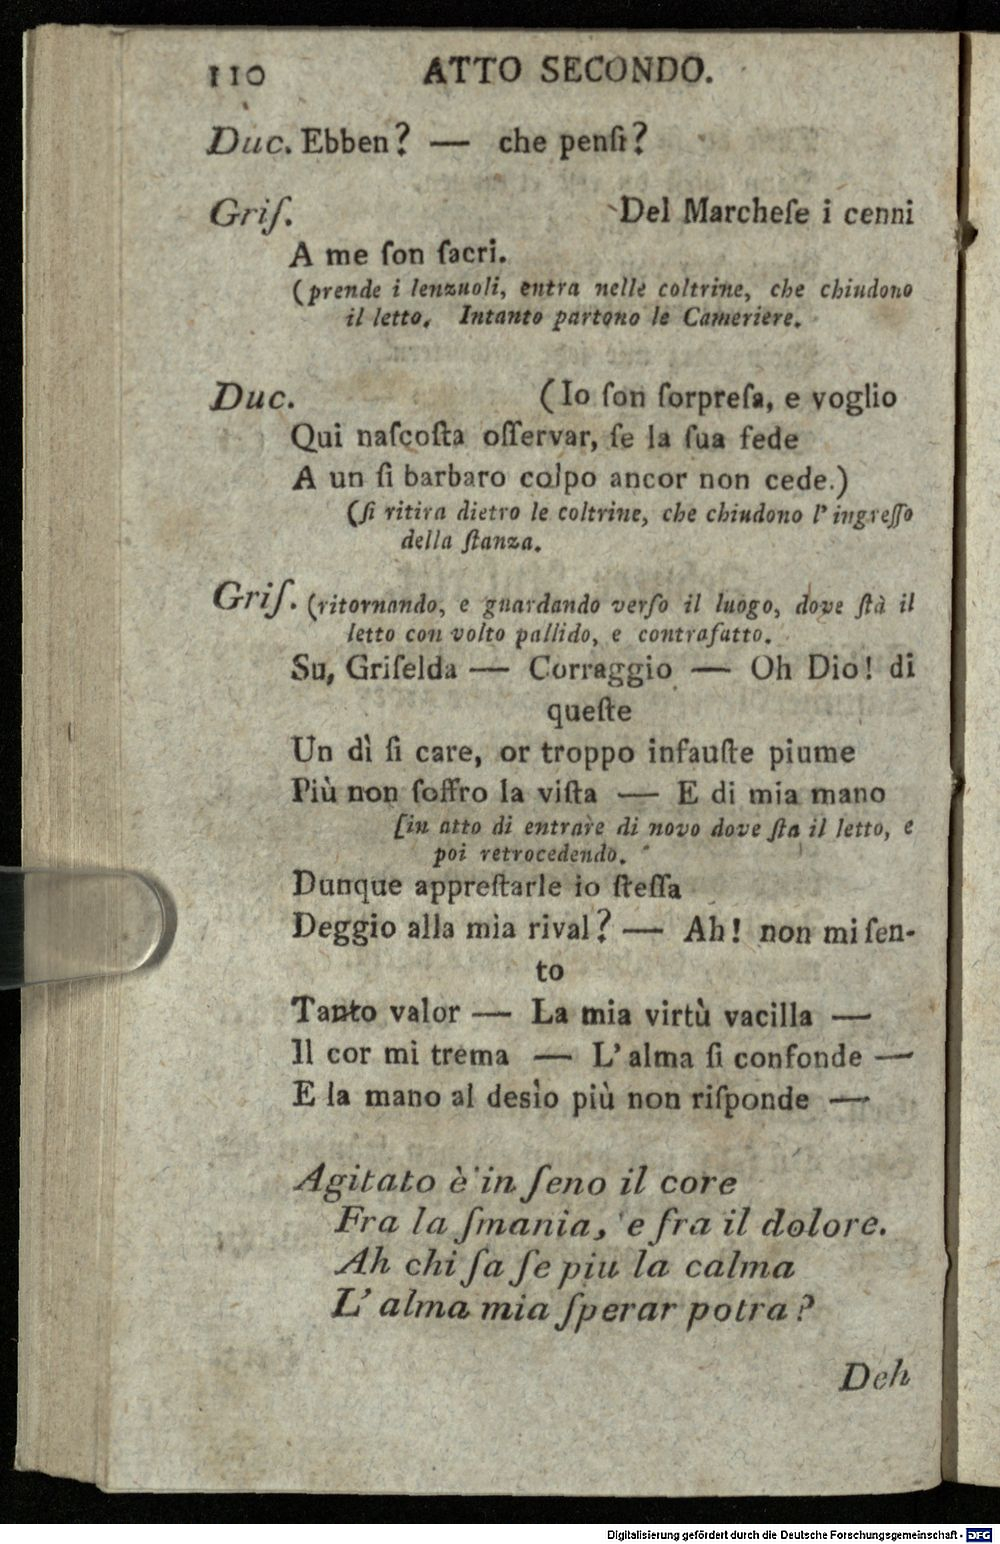 110 ATTO SECONDO.
Duc. Ebben? — che penſi?
Griſ. Del Marcheſe i cenni
A me ſon ſacri.
(prende i lenzuoli, entra nelle coltrine, che chiudono
il letto. Intanto partono le Cameriere.
Duc. (Io ſon ſorpreſa, e voglio
Qui naſcoſta oſſervar, ſe la ſua fede
A un ſi barbaro colpo ancor non cede.)
(ſi ritira dietro le coltrine, che chiudono l'ingreſſo
della ſtanza.
Griſ. (ritornando, e guardando verſo il luogo, dove ſtà il
letto con volto pallido, e contrafatto.
Su, Griſelda — Corraggio — Oh Dio! di
queſte
Un dì ſi care, or troppo infauſte piume
Più non ſoffro la viſta — E di mia mano
[in atto di entrare di novo dove ſta il letto, e
poi retrocedendo.
Dunque appreſtarle io ſteſſa
Deggio alla mia rival? — Ah! non mi ſen-
to
Tanto valor — La mia virtù vacilla —
Il cor mi trema — L'alma ſi confonde —
E la mano al desìo più non riſponde —
Agitato è in ſeno il core
Fra la ſmania, e fra il dolore.
Ah chi ſa ſe piu la calma
L'alma mia ſperar potra?
Deh
Digitalisierung gefördert durch die Deutsche Forschungsgemeinschaft - DFG